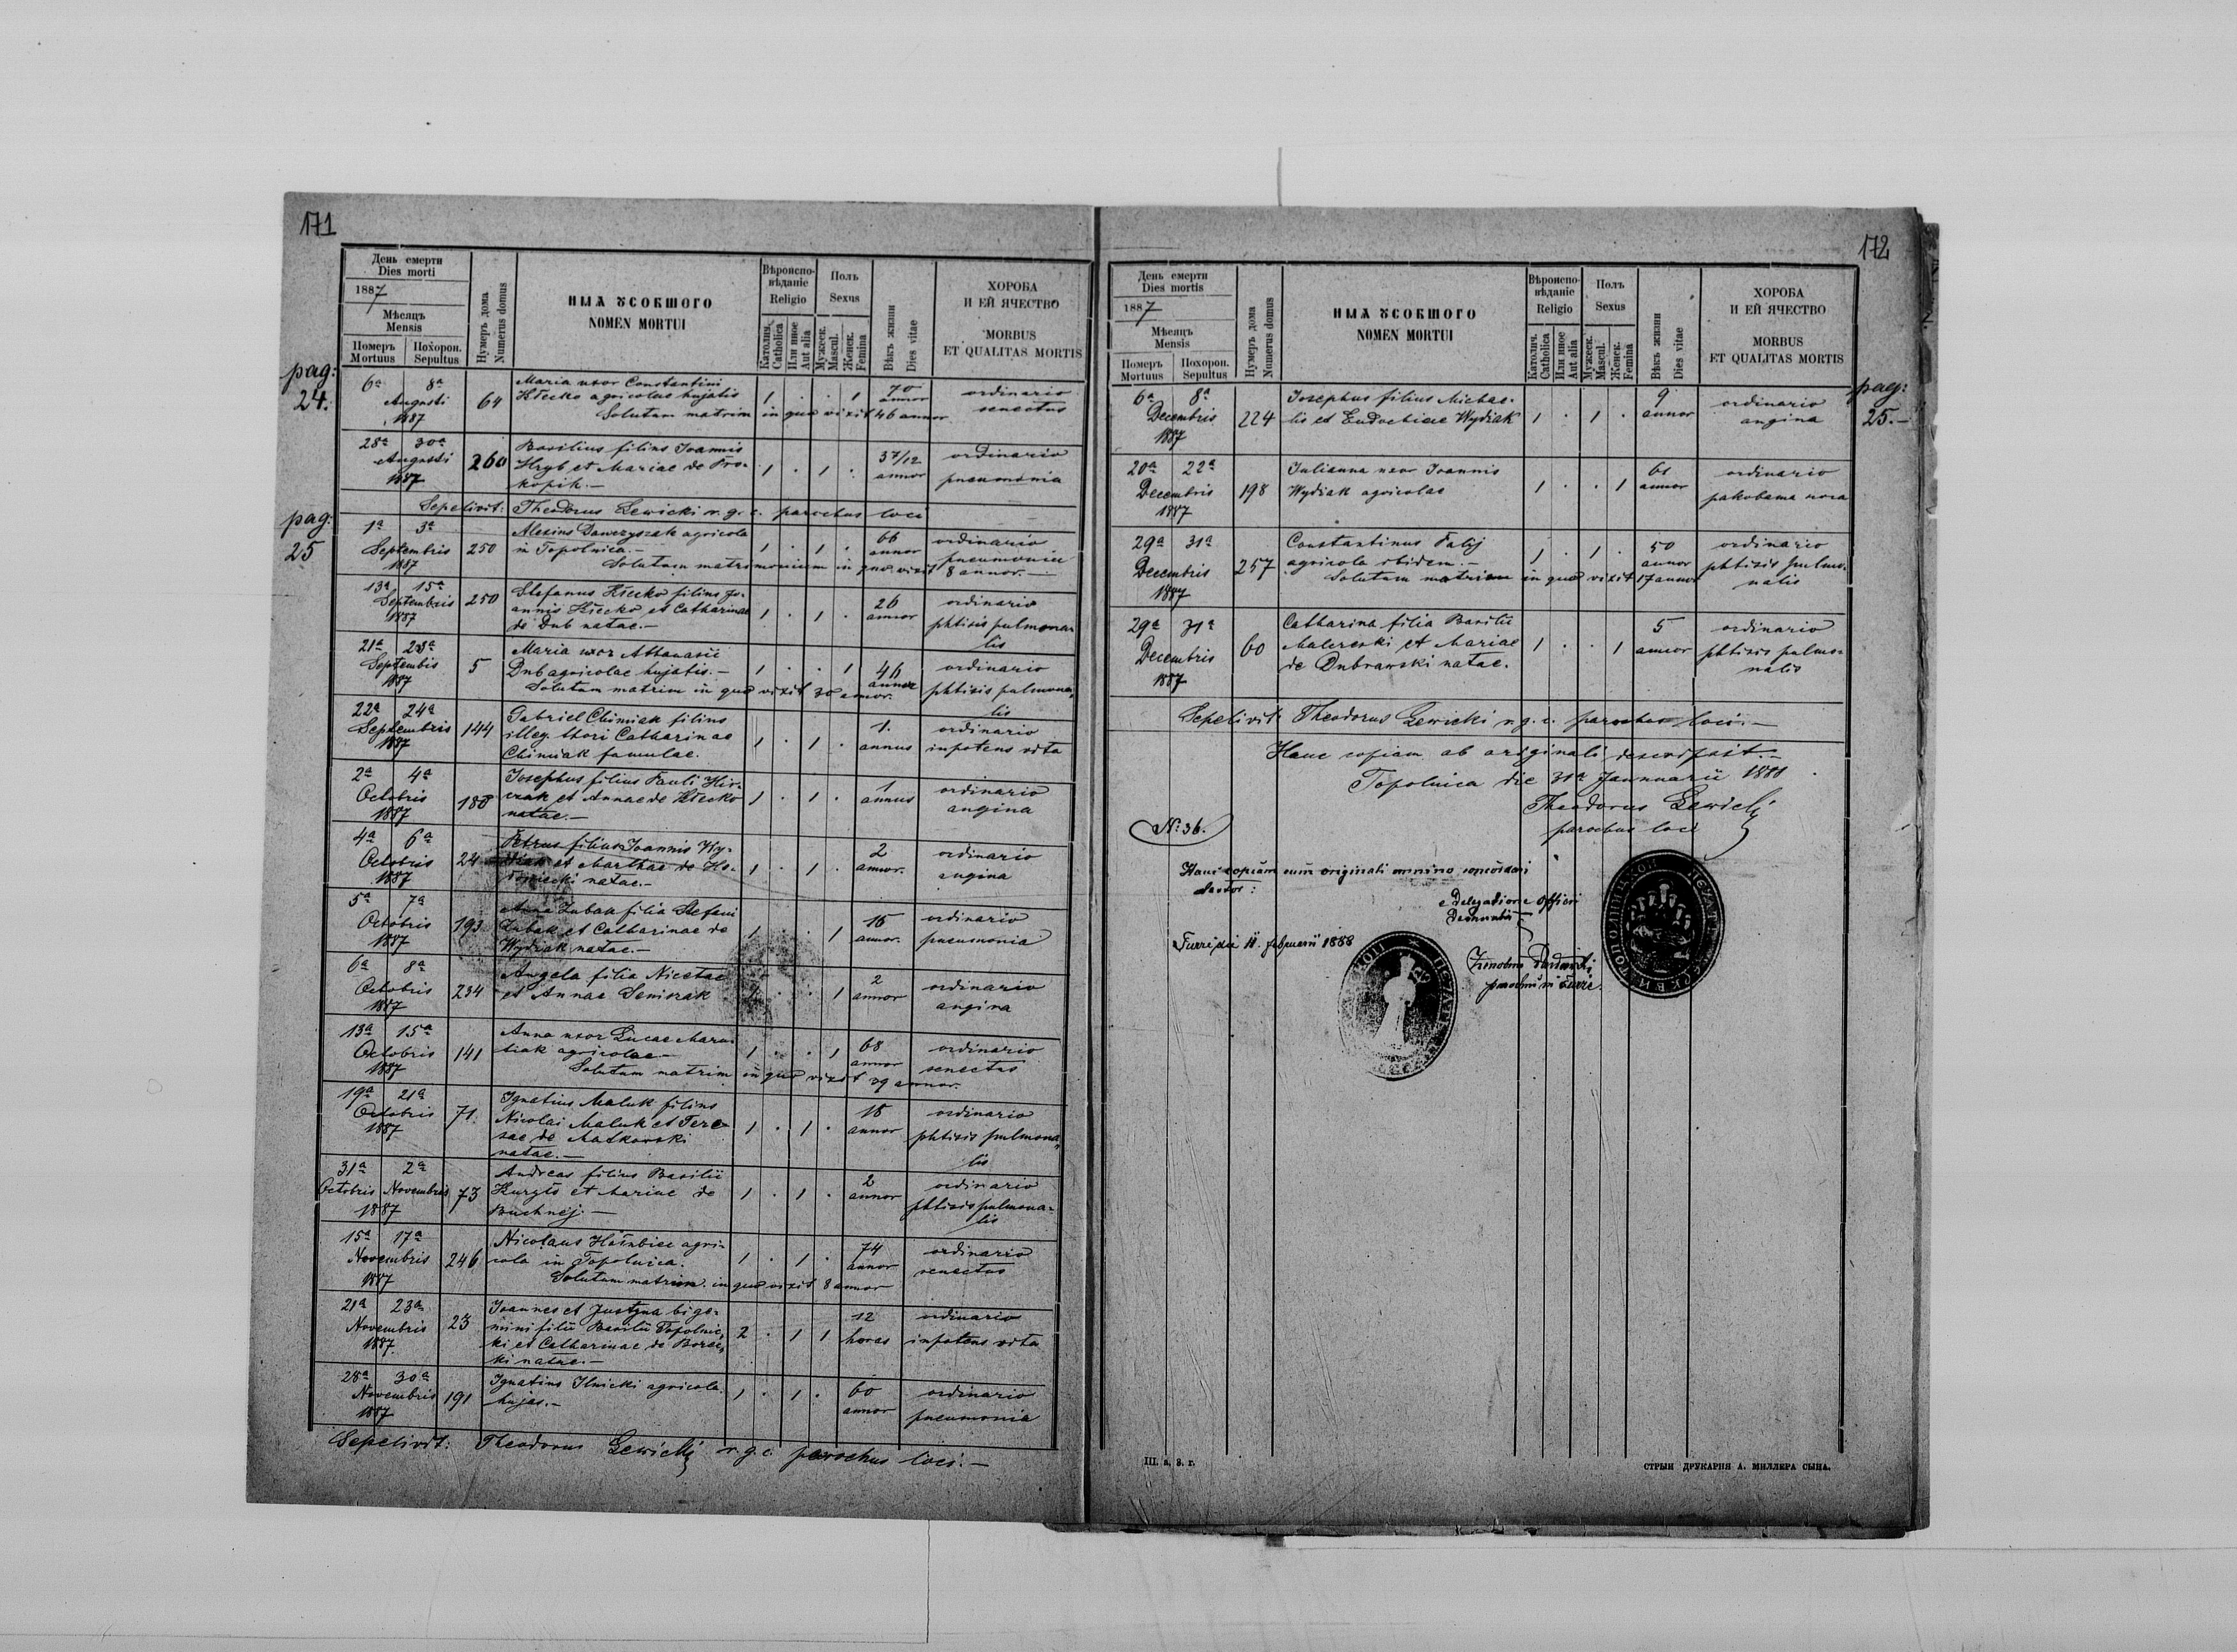 171
День смерти
Dies morti
1887
Мѣсяцъ
Mensis
Померъ Mortuus
Похорон. Sepultus
Нумеръ дома
Numerus domus
ИМЯ УСОБШОГО
NOMEN MORTUI
Вѣроиспо-
вѣданіе
Religio
Католич.
Catholica
Или иное
Aut alia
Полъ
Sexus
Мужеск.
Mascul.
Женск.
Femina
Вѣкъ жизни
Dies vitae
ХОРОБА
И ЕЙ ЯЧЕСТВО
MORBUS
ET QUALITAS MORTIS
pag: 24.
6a 8a
Augusti
1887
64
Maria uxor Constantini
Klecko agricolae hujatis
Solutum matrim in quo vixit 46 annor
1 . . 1
70
annor
ordinario
senectus
28a 30a
Augusti
1887
260
Basilius filius Joannis
Hryb et Mariae de Pro-
kopik.-
1 . 1 .
3 7/12
annor
ordinario
pneumonia
Sepelivit: Theodorus Lewicki r. g. c. parochus loci
pag: 25
1a 3a
Septembris
1887
250
Alexius Dawczyszak agricola
in Topolnica.-
Solutum matrimonium in quo vixit 8 annor.-
1 . 1 .
66
annor
ordinario
pneumonia
13a 15a
Septembris
1887
250
Stefanus Klecko filius Jo-
annis Klecko et Catharinae
de Dub natae.-
1 . 1 .
26
annor
ordinario
phtisis pulmona-
lis
21a 23a
Septembis
1887
5
Maria uxor Athanasii
Dub agricolae hujatis.-
Solutum matrim in quo vixit 30 annor.
1 . . 1
46
annor
ordinario
phtisis pulmona-
lis
22a 24a
Septembris
1887
144
Gabriel Chimiak filius
illeg. thori Catharinae
Chimiak famulae.
1 . 1 .
1.
annus
ordinario
inpotens vita
2a 4a
Octobris
1887
188
Josephus filius Pauli
et Annae de Klecko
natae.-
1 . 1 .
1
annus
ordinario
angina
4a 6a
Octobris
1887
24
Petrus filius Joannis Wy-
diak et Marthae de
natae.-
1 . 1 .
2
annor.
ordinario
angina
5a 7a
Octobris
1887
193
Anna Zubak filia Stefani
Zubak et Catharinae de
Wydiak natae.-
1 . . 1
15
annor.
ordinario
pneumonia
6a 8a
Octobris
1887
234
Angela filia Nicetae
et Annae Seniszak
1 . . 1
2
annor
ordinario
angina
13a 15a
Octobris
1887
141
Anna uxor Lucae
agricolae-
Solutum matrim in quo vixit 39 annor.
1 . . 1
68
annor
ordinario
senectus
19a 21a
Octobris
1887
71.
Ignatius Maluk filius
Nicolai Maluk et Tere-
sae de Matkowski
natae.-
1 . 1 .
18
annor
ordinario
phtisis pulmona-
lis
31a 2a
Octobris Novembris
1887
73
Andreas filius Basilii
et Mariae de
Buchnej.-
1 . 1 .
2
annor
ordinario
phtisis pulmona-
lis
15a 17a
Novembris
1887
246
Nicolaus agri-
cola in Topolnica.
Solutum matrim. in quo vixit 8 annor
1 . 1 .
74
annor
ordinario
senectus
21a 23a
Novembris
1887
23
Joannes et Justyna bige-
mini filii Basilii Topolnic-
ki et Catharinae de Borec-
ki natae.-
2 . 1 1
12
horas
ordinario
inpotens vita
28a 30a
Novembris
1887
191
Ignatius Ilnicki agricola
hujas.-
1 . 1 .
60
annor
ordinario
pneumonia
Sepelivit: Theodorus Lewicki r. g. c. parochus loci.-
172
День смерти
Dies mortis
1887
Мѣсяцъ
Mensis
Померъ Mortuus
Похорон. Sepultus
Нумеръ дома
Numerus domus
ИМЯ УСОБШОГО
NOMEN MORTUI
Вѣроиспо-
вѣданіе
Religio
Католич.
Catholica
Или иное
Aut alia
Полъ
Sexus
Мужеск.
Mascul.
Женск.
Femina
Вѣкъ жизни
Dies vitae
ХОРОБА
И ЕЙ ЯЧЕСТВО
MORBUS
ET QUALITAS MORTIS
pag: 25.-
6a 8a
Decembris
1887
224
Josephus filius Michae-
lis et Eudochiae Wydiak
1 . 1 .
9
annor
ordinario
angina
20a 22a
Decembris
1887
198
Julianna uxor Joannis
Wydiak agricolae
1 . . 1
61
annor
ordinario
29a 31a
Decembris
1887
257
Constantinus Falij
agricola ibidem.-
Solutum matrim in quo vixit 17 annor
1 . 1 .
50
annor
ordinario
phtisis pulmo-
nalis
29a 31a
Decembris
1887
60
Catharina filia Basilii
et Mariae
de Dubrawski natae.
1 . . 1
5
annor
ordinario
phtisis pulmo-
nalis
Sepelivit: Theodorus Lewicki r. g. c. parochus loci.-
Hanc copiam ab originali descripsit.-
Topolnica die 31a Januarii 1888
Theodorus Lewicki
parochus loci
N: 36.
Hanc copiam cum originali omnino concordari
testor:
e Delegatione Officii
Decanalis
Turze die 11. februarii 1888
parochus in Turze.
III. а. 3. г.
СТРЫЙ ДРУКАРНЯ А. МИЛЛЕРА СЫНА.